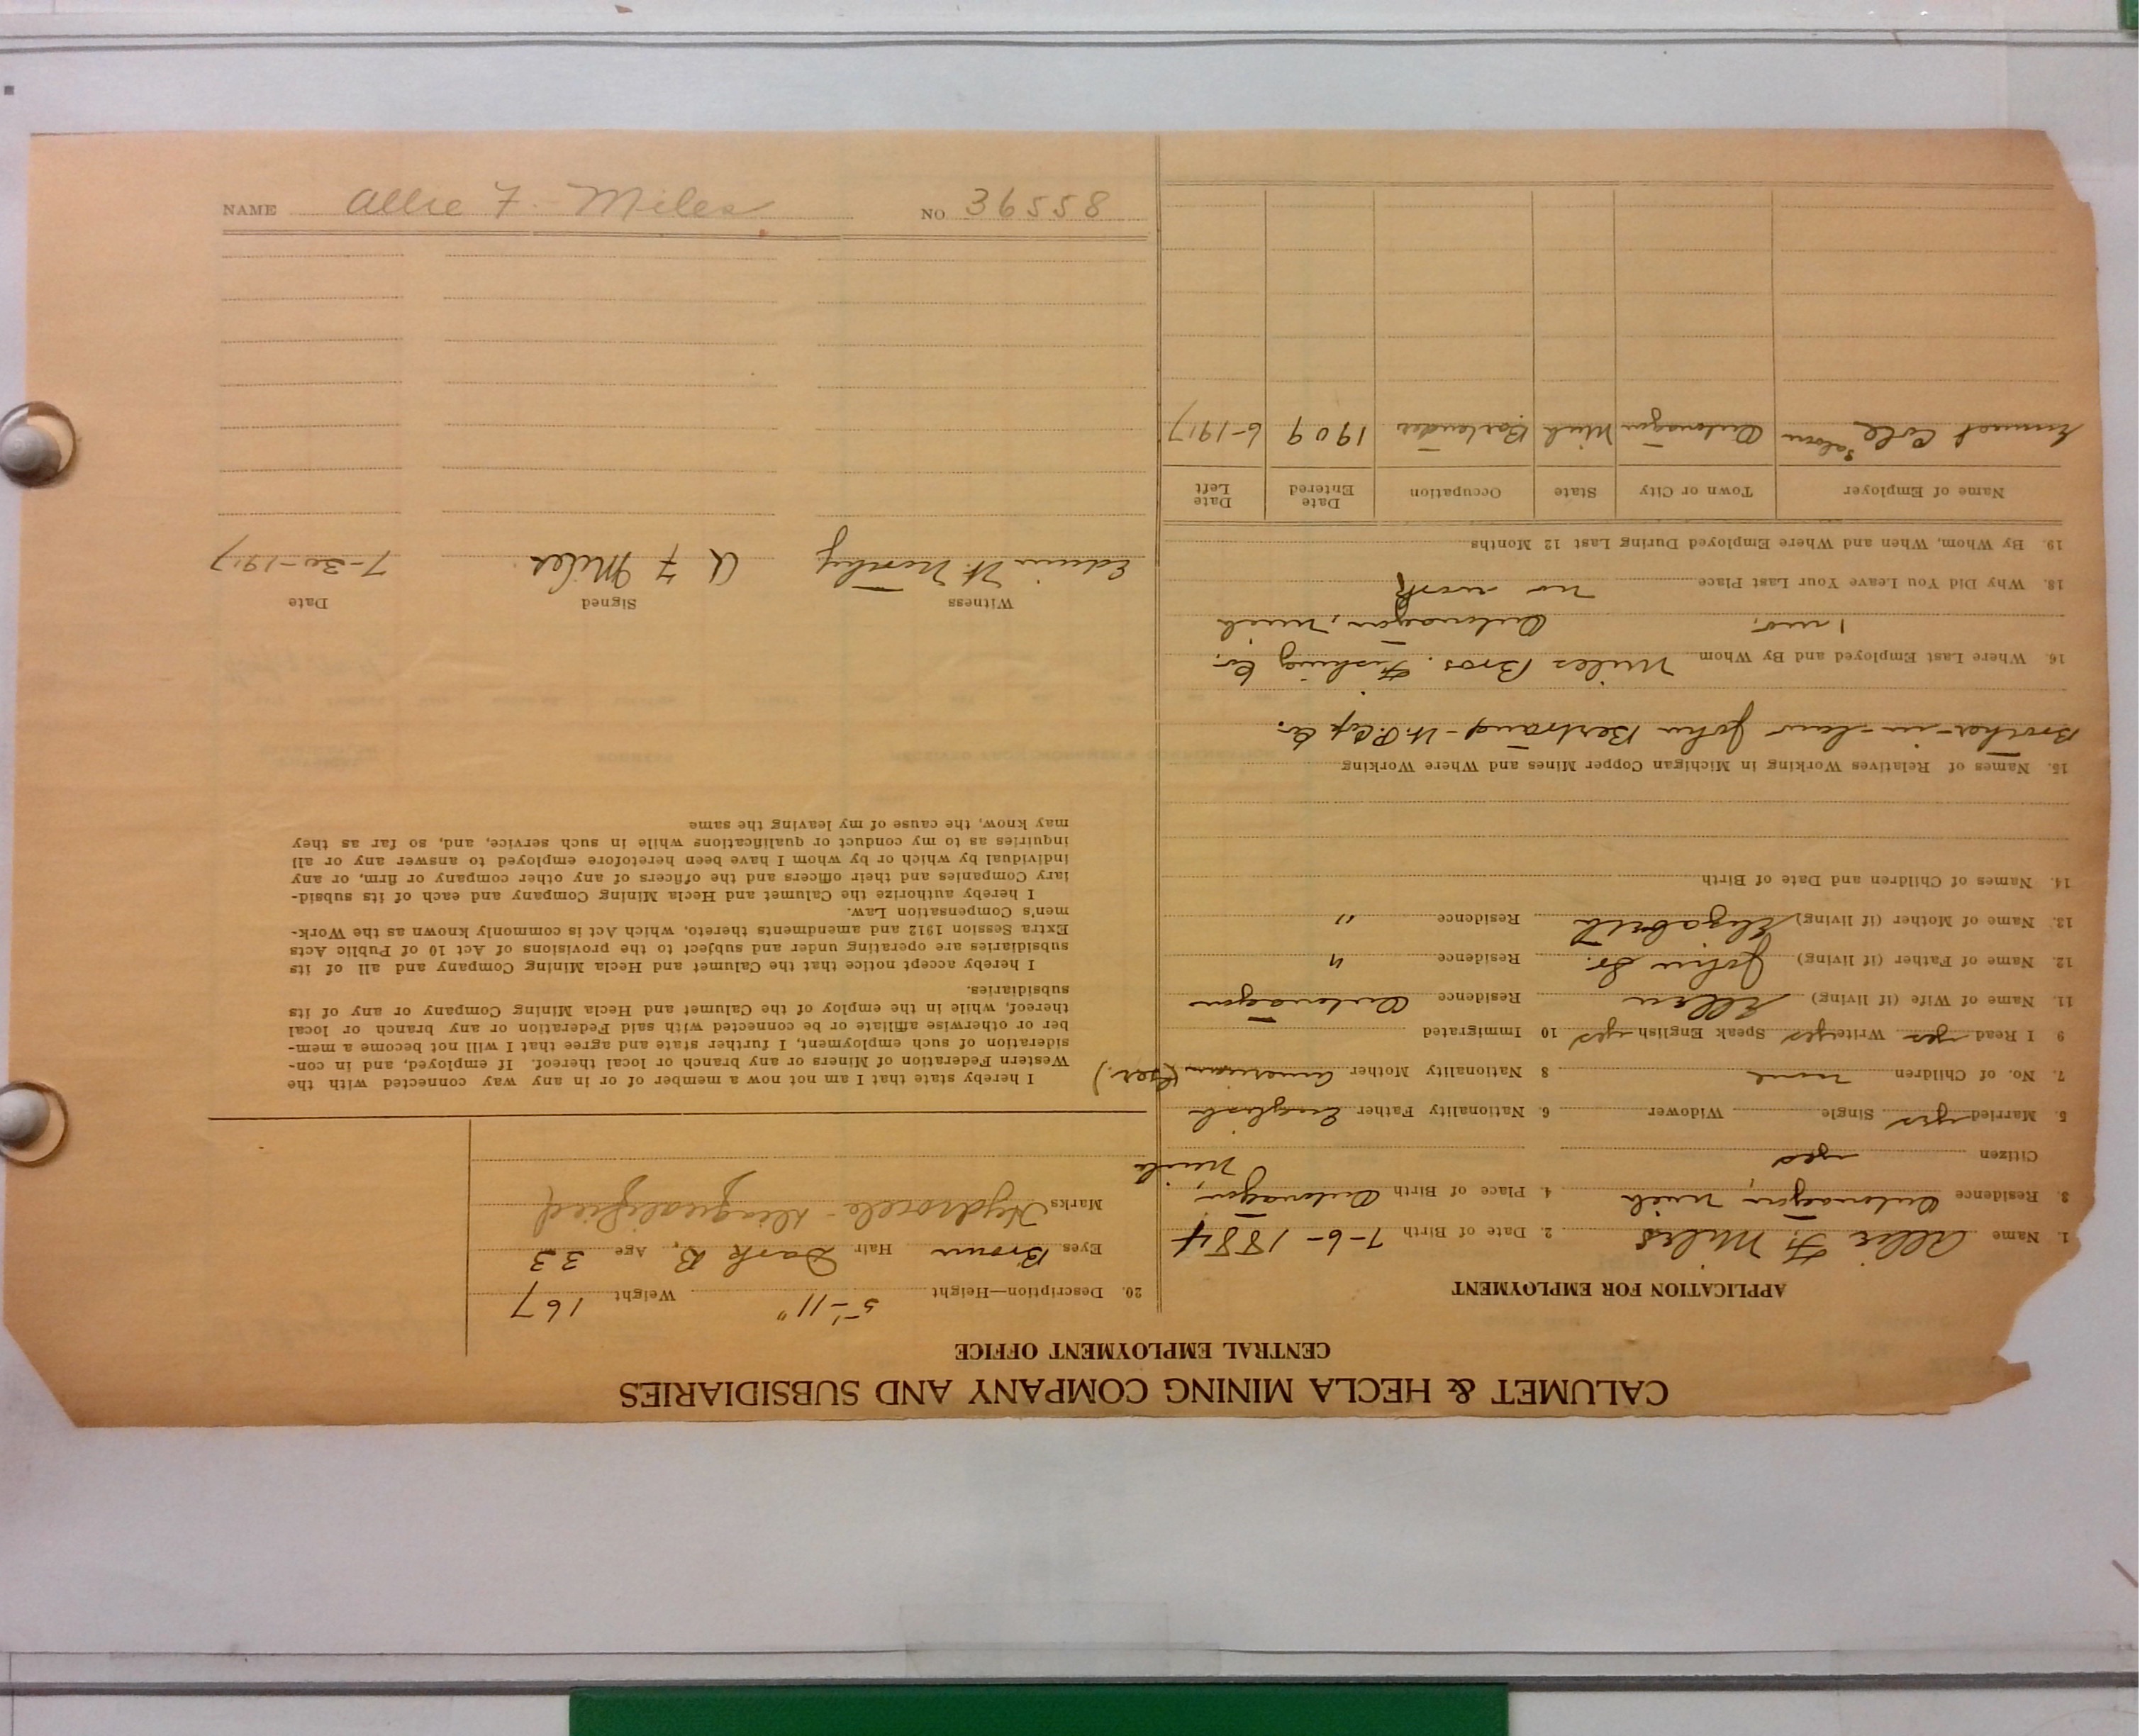 CALUMET & HECLA MINING COMPANY AND SUBSIDIARIES
CENTRAL EMPLOYMENT OFFICE
APPLICATION FOR EMPLOYMENT
1. Name Allie F. Miles 2. Date of Birth 7-6-1884
3. Residence Ontonagon, Mich 4. Place of Birth Ontonagon, Mich
Citizen yes
5. Married yes Single Widower 6. Nationality Father English
7. No. of Children none 8 Nationality Mother American (Ger.)
9 I Read yes Write yes Speak English yes 10 Immigrated
11. Name of Wife (if living) Ellen Residence Ontonagon
12. Name of Father (if living) John Sr. Residence "
13. Name of Mother (if living) Elizabeth Residence "
14. Names of Children and Date of Birth
15. Names of Relatives Working in Michigan Copper Mines and Where Working
Brother-in-law John Bertrand - W. P. Cop Co.
16. Where Last Employed and By Whom Miles Bros. Fishing Co.
1 mo. Ontonagon, Mich
18. Why Did You Leave Your Last Place no work
19. By Whom, When and Where Employed During Last 12 Months
Name of Employer Town or City State Occupation Date Entered Date Left
Emmet Cole Saloon Ontonagon Mich Bartender 1909 6-1917
20. Description—Height 5'-11" Weight 167
Eyes Brown Hair Dark B. Age 33
Marks Hydrocele - disqualified
I hereby state that I am not now a member of or in any way connected with the
Western Federation of Miners or any branch or local thereof. If employed, and in con-
sideration of such employment, I further state and agree that I will not become a mem-
ber or otherwise affiliate or be connected with said Federation or any branch or local
thereof, while in the employ of the Calumet and Hecla Mining Company or any of its
subsidiaries.
I hereby accept notice that the Calumet and Hecla Mining Company and all of its
subsidiaries are operating under and subject to the provisions of Act 10 of Public Acts
Extra Session 1912 and amendments thereto, which Act is commonly known as the Work-
men's Compensation Law.
I hereby authorize the Calumet and Hecla Mining Company and each of its subsid-
iary Companies and their officers and the officers of any other company or firm, or any
individual by which or by whom I have been heretofore employed to answer any or all
inquiries as to my conduct or qualifications while in such service, and, so far as they
may know, the cause of my leaving the same
Witness Signed Date
Edwin W. A F Miles 7-30-1917
NAME Allie F. Miles NO. 36558